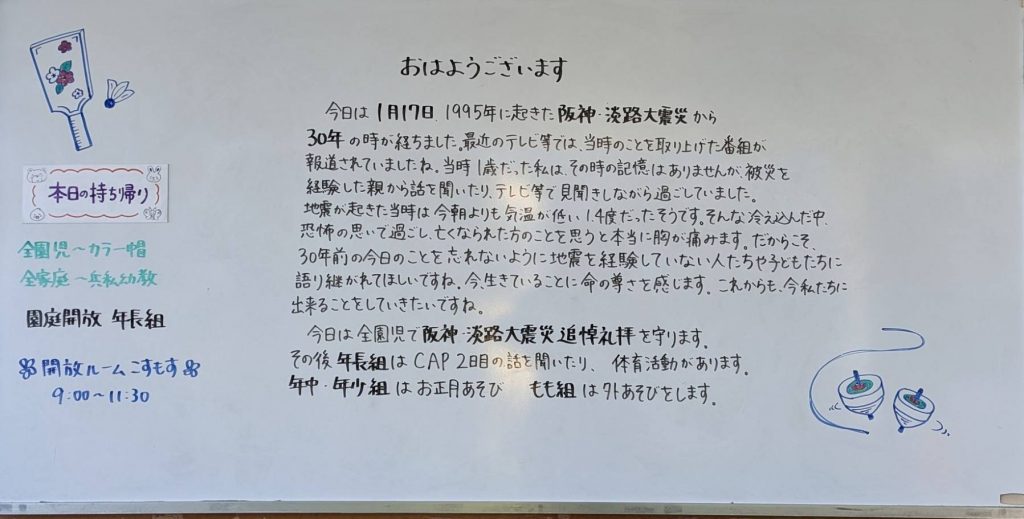 おはようございます
今日は1月17日、1995年に起きた阪神・淡路大震災から
30年の時が経ちました。最近のテレビ等では、当時のことを取り上げた番組が
報道されていましたね。当時1歳だった私は、その時の記憶はありませんが、被災を
経験した親から話を聞いたり、テレビ等で見聞きしながら過ごしていました。
地震が起きた当時は今朝よりも気温が低い1.4度だったそうです。そんな冷え込んだ中、
恐怖の思いで過ごし、亡くなられた方のことを思うと本当に胸が痛みます。だからこそ、
30年前の今日のことを忘れないように地震を経験していない人たちや子どもたちに
語り継がれてほしいですね。今、生きていることに命の尊さを感じます。これからも、今私たちに
出来ることをしていきたいですね。
今日は全園児で阪神・淡路大震災追悼礼拝を守ります。
その後年長組はCAP2日目の話を聞いたり、体育活動があります。
年中・年少組はお正月あそび もも組は外あそびをします。
本日の持ち帰り
全園児〜カラー帽
全家庭〜兵私幼教
園庭開放 年長組
開放ルームこすもす
9:00〜11:30